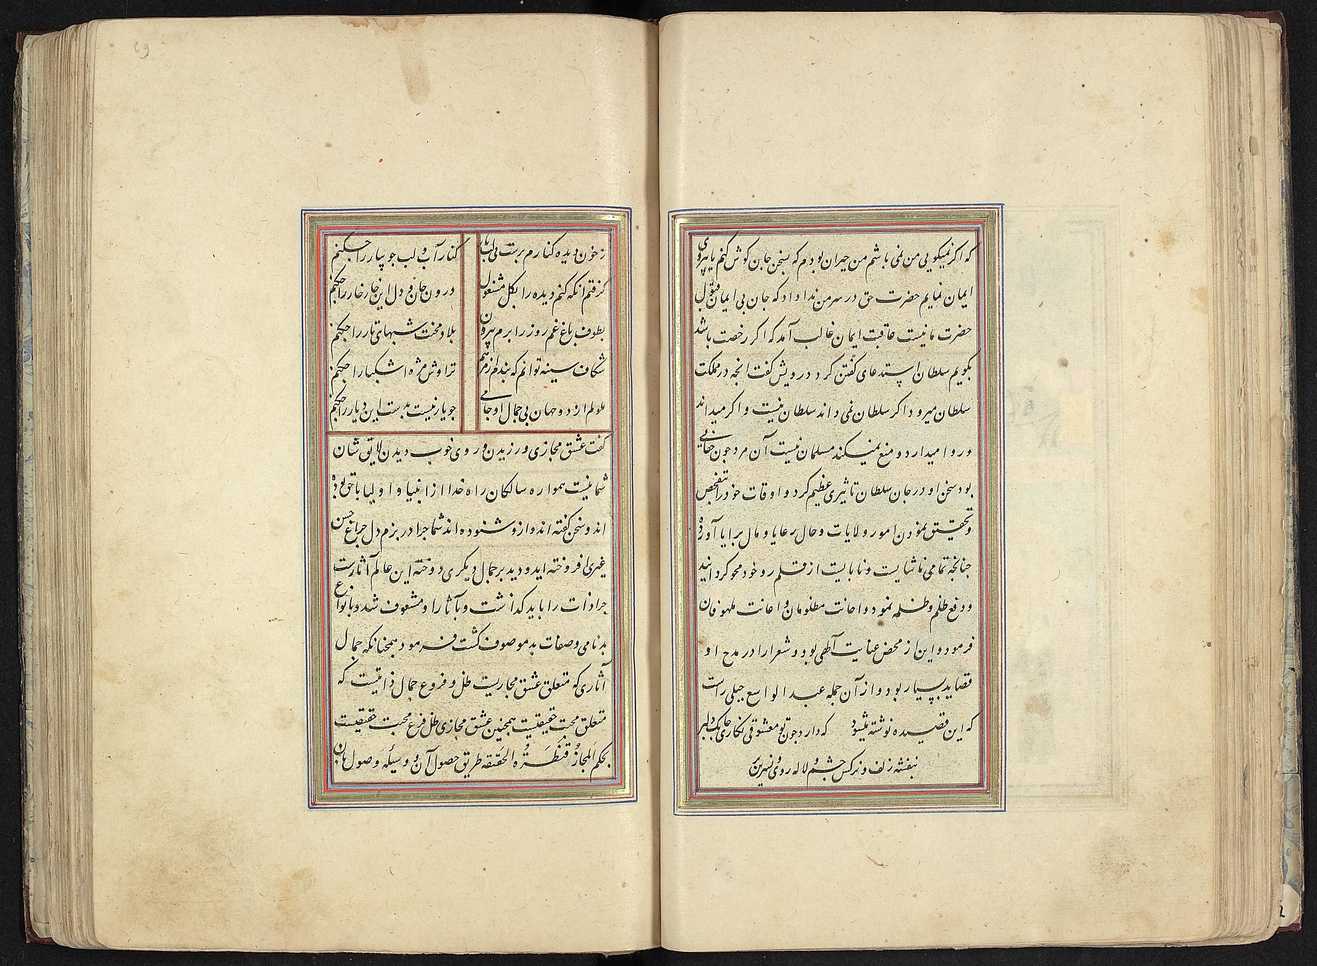 که اگر نمیکویی من نمی باشم من حیران بودم که بسخن جان کوش کنم یا پیروی
ایمان نمایم حضرت حق در سر من ندا داد که جان بی ایمان قبول
حضرت ما نیست عاقبت ایمان غالب آمد که اگر رخصت باشد
بگویم سلطان استدعای کفتن کرد درویش کفت انچه در مملکت
سلطان میرود اگر سلطان نمی داند سلطان نیست و اگر میداند
و روا میدارد و منع نمیکند مسلمان نیست آن مرد چون حقانی
بود سخن او در جان سلطان تاثیری عظیم کرد و اوقات خود را بتفحص
و تحقیق نمودن امور ولایات و حال رعایا و مال برایا آورده
چنانچه تمامی ناشایست و نابایست از قلم رو خود محو کردانید
و دفع ظلم و ظلمه نمود و اعانت مظلومان و اغاثت ملهوفان
فرمود و این از محض عنایت آلهی بود و شعرا را در مدح او
قصاید بسیار بود و از آن جمله عبد الواسع جبلی راست
که این قصیده نوشته میشود که دارد چون تو معشوقی نکاری چابک دلبر
بنفشه زلف و نرکس چشم و لاله روی و نسرین
ز خون دیده کنارم پرست بی لب یار کنار آب و لب جویبار را چکنم
کرفتم انکه کنم دیده را بکل مشغول درون جان و دل این خارخار را چکنم
بطوف باغ غم روز را برم بیرون بلا و محنت شبهای تار را چکنم
شکاف سینه توانم که بندم از مرهم تراوش مژه اشکبار را چکنم
ملولم از دو جهان بی جمال او جامی چو یار نیست بدست این دیار را چکنم
کفت عشق مجازی ورزیدن و روی خوب دیدن لایق شان
شما نیست همواره سالکان راه خدا از انبیا و اولیا با حق بوده
اند و سخن کفته اند و از و شنوده اند شما چرا در بزم دل چراغ حسن
غیری افروخته اید و دیده بر جمال دیکری دوخته این عالم آثارست
چرا ذات را باید کذاشت و با آثار او مشعوف شد و بانواع
بدنامی و صفات بد موصوف کشت فرمود همچنانکه جمال
آثاری که متعلق عشق مجازیست ظل و فروع جمال ذاتیست که
متعلق محبت حقیقیست همچنین عشق مجازی ظل و فرع محبت حقیقیست
بحکم المجاز قنطرة الحقیقه طریق حصول آن و وسیله وصول بان